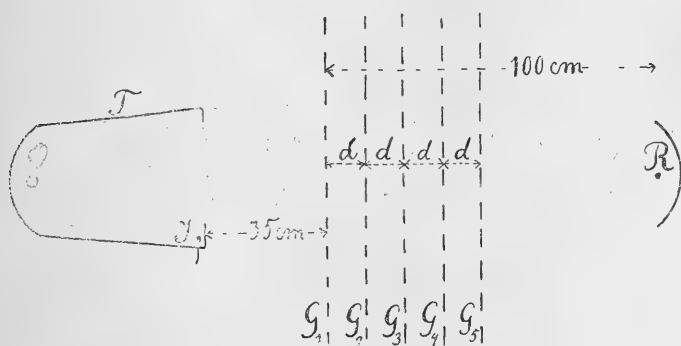 100 cm
T
d d d d
R
J 35cm
G1 G2 G3 G4 G5